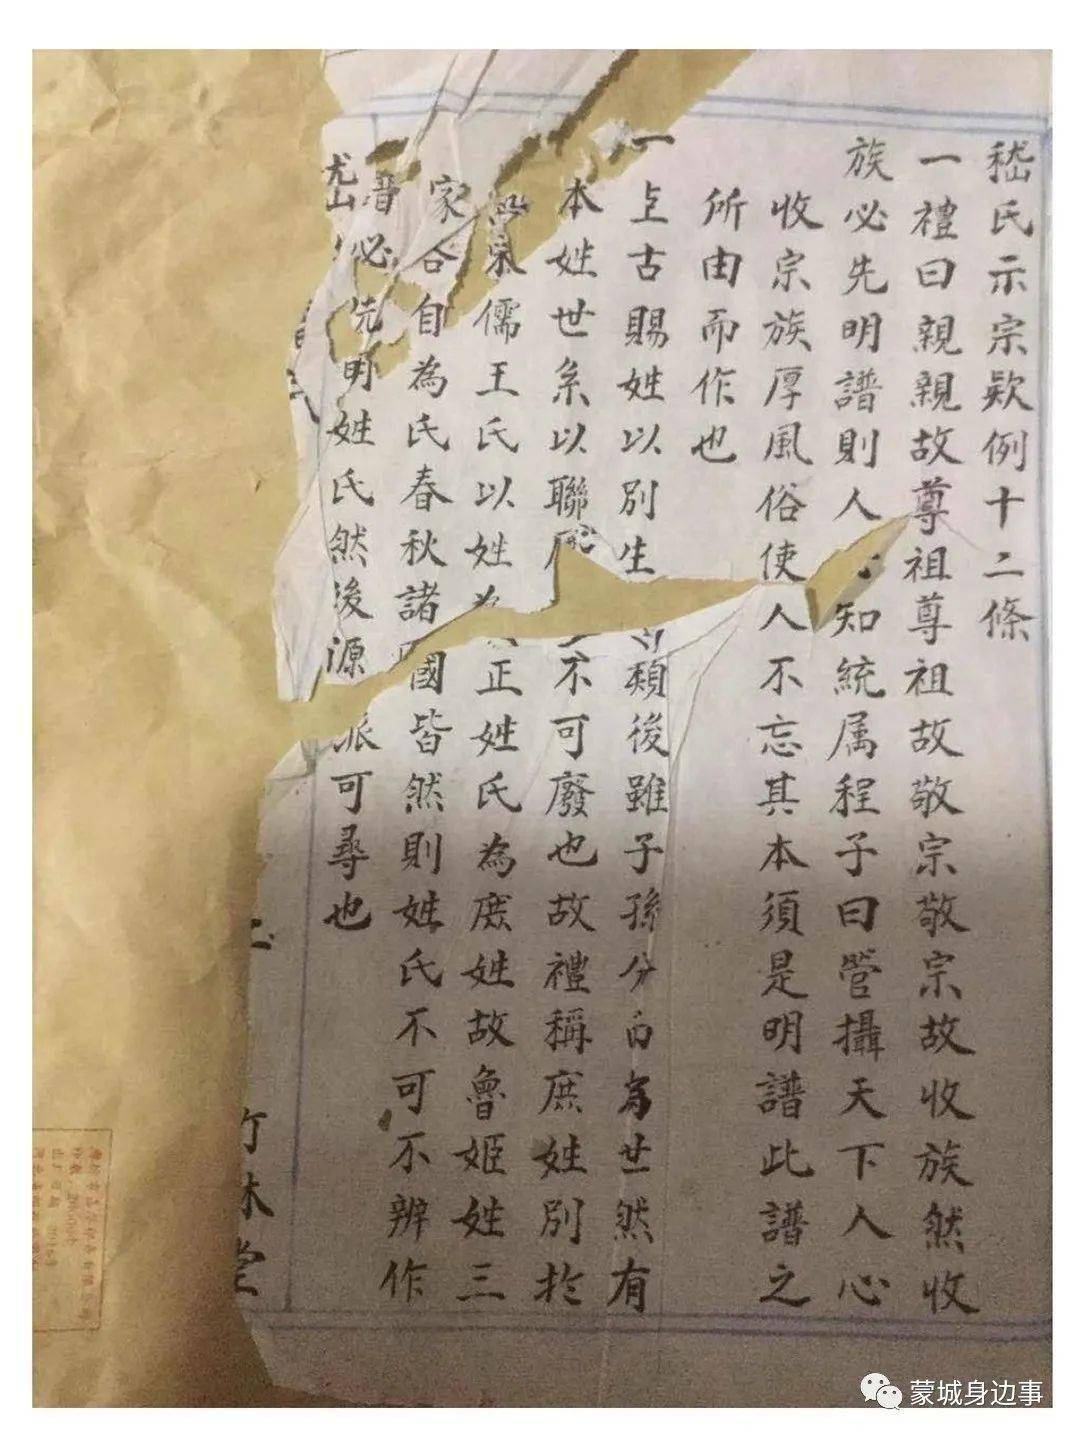 嵇氏示宗欵例十二條
一禮曰親親故尊祖尊祖故敬宗敬宗故收族然收
族必先明譜則人知統属程子曰管攝天下人心
收宗族厚風俗使人不忘其本須是明譜此譜之
所由而作也
一上古賜姓以別生類後雖子孫分为世然有
本姓世系以聯不可廢也故禮稱庶姓別扵
宋儒王氏以姓為正姓氏為庶姓故魯姬姓三
家各自為氏春秋諸國皆然則姓氏不可不辨作
譜必先明姓氏然後源派可尋也
竹林堂
蒙城身边事